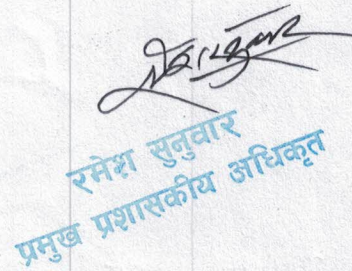 रमेश सुनुवार
प्रमुख प्रशासकीय अधिकृत